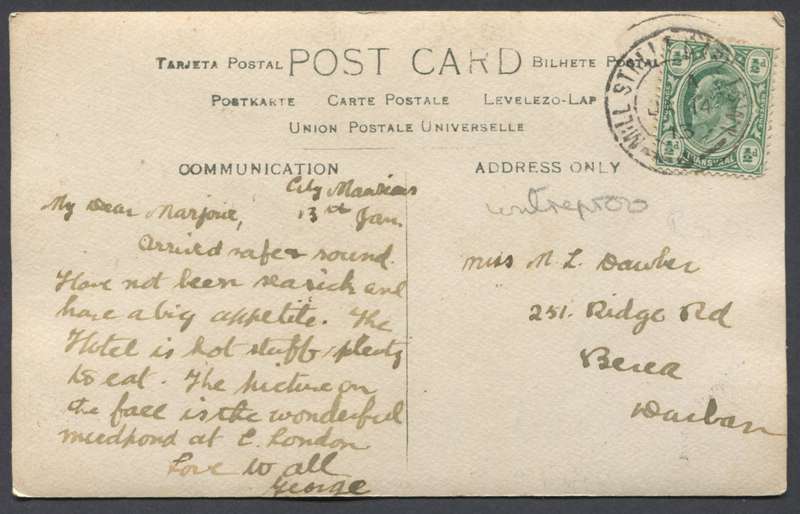 TARJETA POSTAL POST CARD BILHETE POSTAL
POSTKARTE CARTE POSTALE LEVELEZO-LAP
UNION POSTALE UNIVERSELLE
COMMUNICATION
City Mansions
My Dear Marjorie, 13th Jan.
Arrived safe & sound.
Have not been seasick and
have a big appetite. The
Hotel is hot stuff, plenty
to eat. The picture on
the face is the wonderful
mudpond at E. London
Love to all
George
ADDRESS ONLY
Miss M. L. Dawber
251. Ridge Rd
Berea
Durban
MILL STR
½d ½d
TRANSVAAL
½d ½d